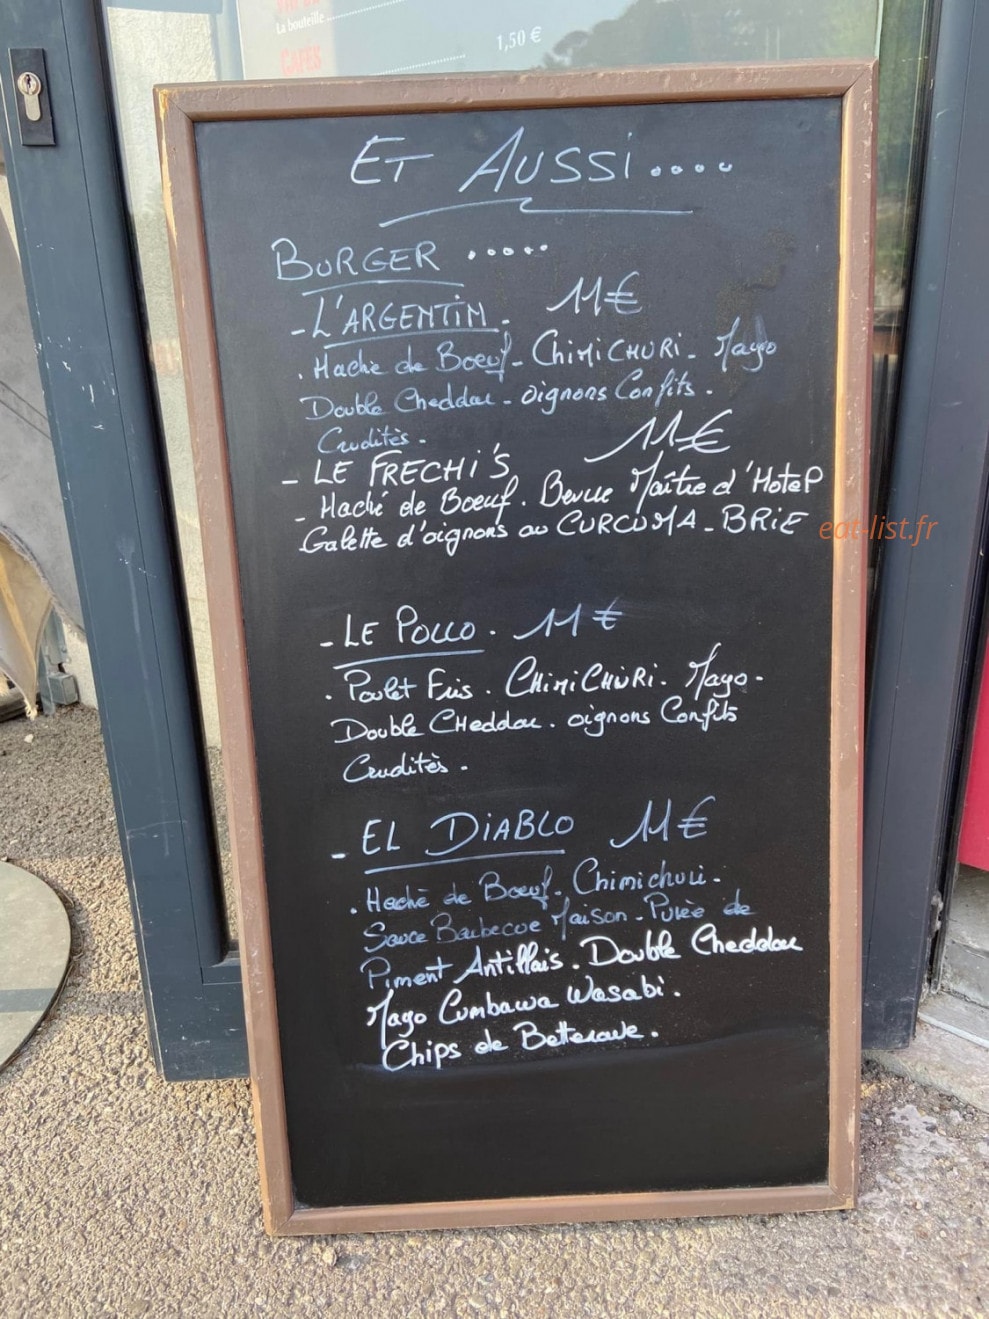 La bouteille
CAFÉS
1,50 €
ET AUSSI....
BURGER .....
- L'ARGENTIN. 11€
. Haché de Boeuf - CHIMICHURI - Mayo
Double Cheddar - oignons Confits.
Crudités.
11€
- LE FRECHI'S
- Haché de Boeuf. Beurre Maître d'Hotel
Galette d'oignons au CURCUMA - BRIE
eat-list.fr
- LE POLLO. 11€
. Poulet Fris. CHIMICHURI. Mayo.
Double CHeddar. oignons Confits
Crudités.
- EL DIABLO 11€
. Haché de Boeuf. Chimichuri.
Sauce Barbecue Maison - Purée de
Piment Antillais. Double Cheddar
Mayo Cumbawa Wasabi.
Chips de Betterave.